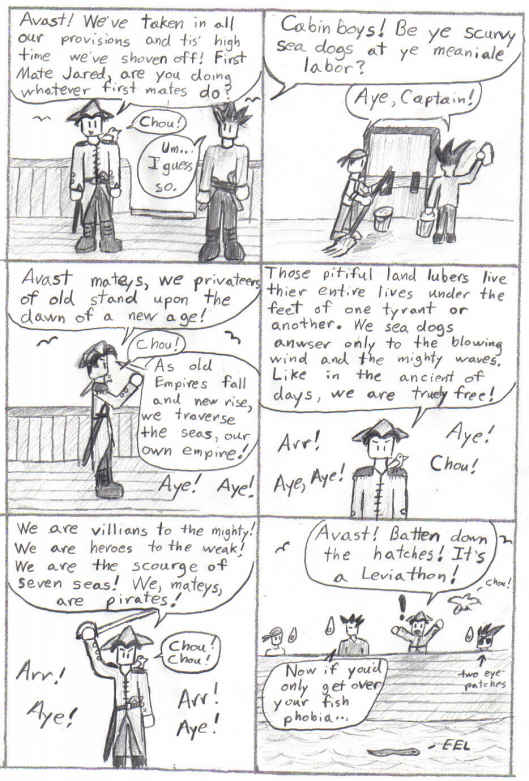 Avast! We've taken in all
our provisions and tis' high
time we've shoven off! First
Mate Jared, are you doing
whatever first mates do?
Chou!
Um...
I guess
so.
Cabin boys! Be ye scurvy
sea dogs at ye meaniale
labor?
Aye, Captain!
Avast mateys, we privateers
of old stand upon the
dawn of a new age!
Chou!
As old
Empires fall
and new rise,
we traverse
the seas, our
own empire!
Aye! Aye!
Those pitiful land lubers live
thier entire lives under the
feet of one tyrant or
another. We sea dogs
anwser only to the blowing
wind and the mighty waves.
Like in the ancient of
days, we are truely free!
Arr!
Aye, Aye!
Aye!
Chou!
We are villians to the mighty!
We are heroes to the weak!
We are the scourge of
seven seas! We, mateys,
are pirates!
Chou!
Chou!
Arr!
Aye!
Arr!
Aye!
Avast! Batten down
the hatches! It's
a Leviathon!
!
chou!
Now if you'd
only get over
your fish
phobia...
two eye
patches
EEL